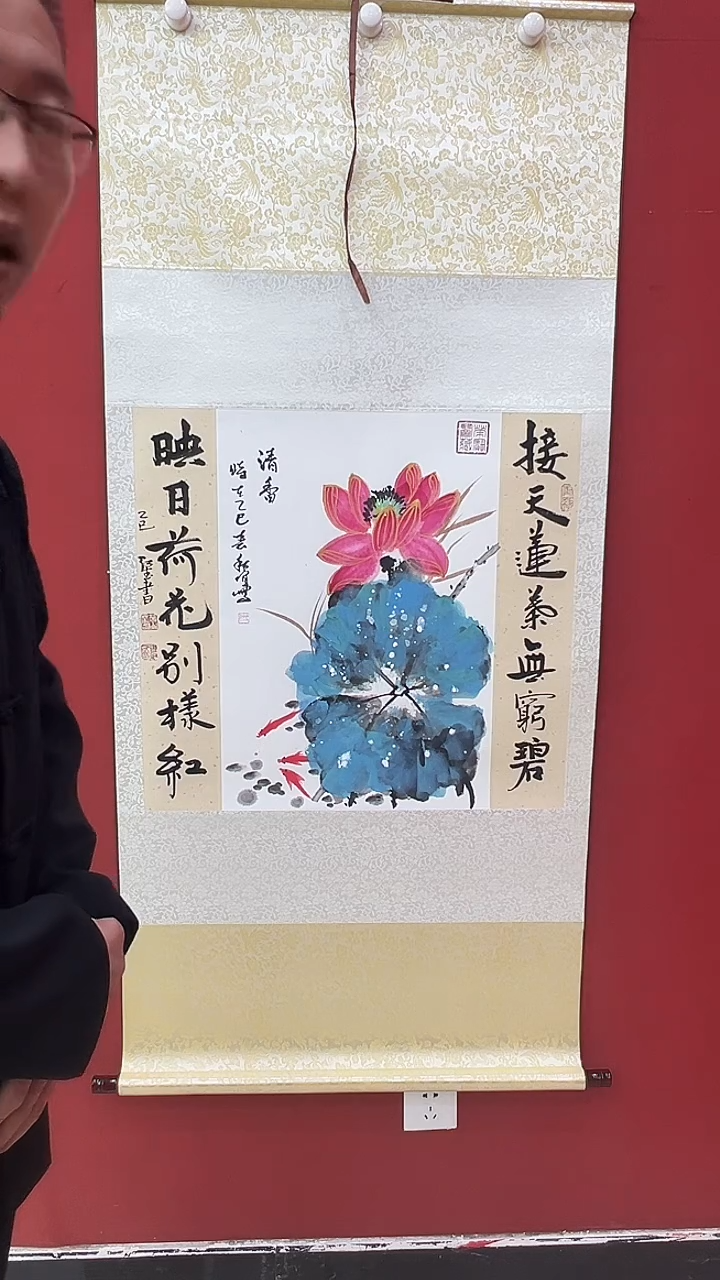 接天蓮葉無窮碧
清香
時在乙巳春
映日荷花别樣紅
乙巳
書